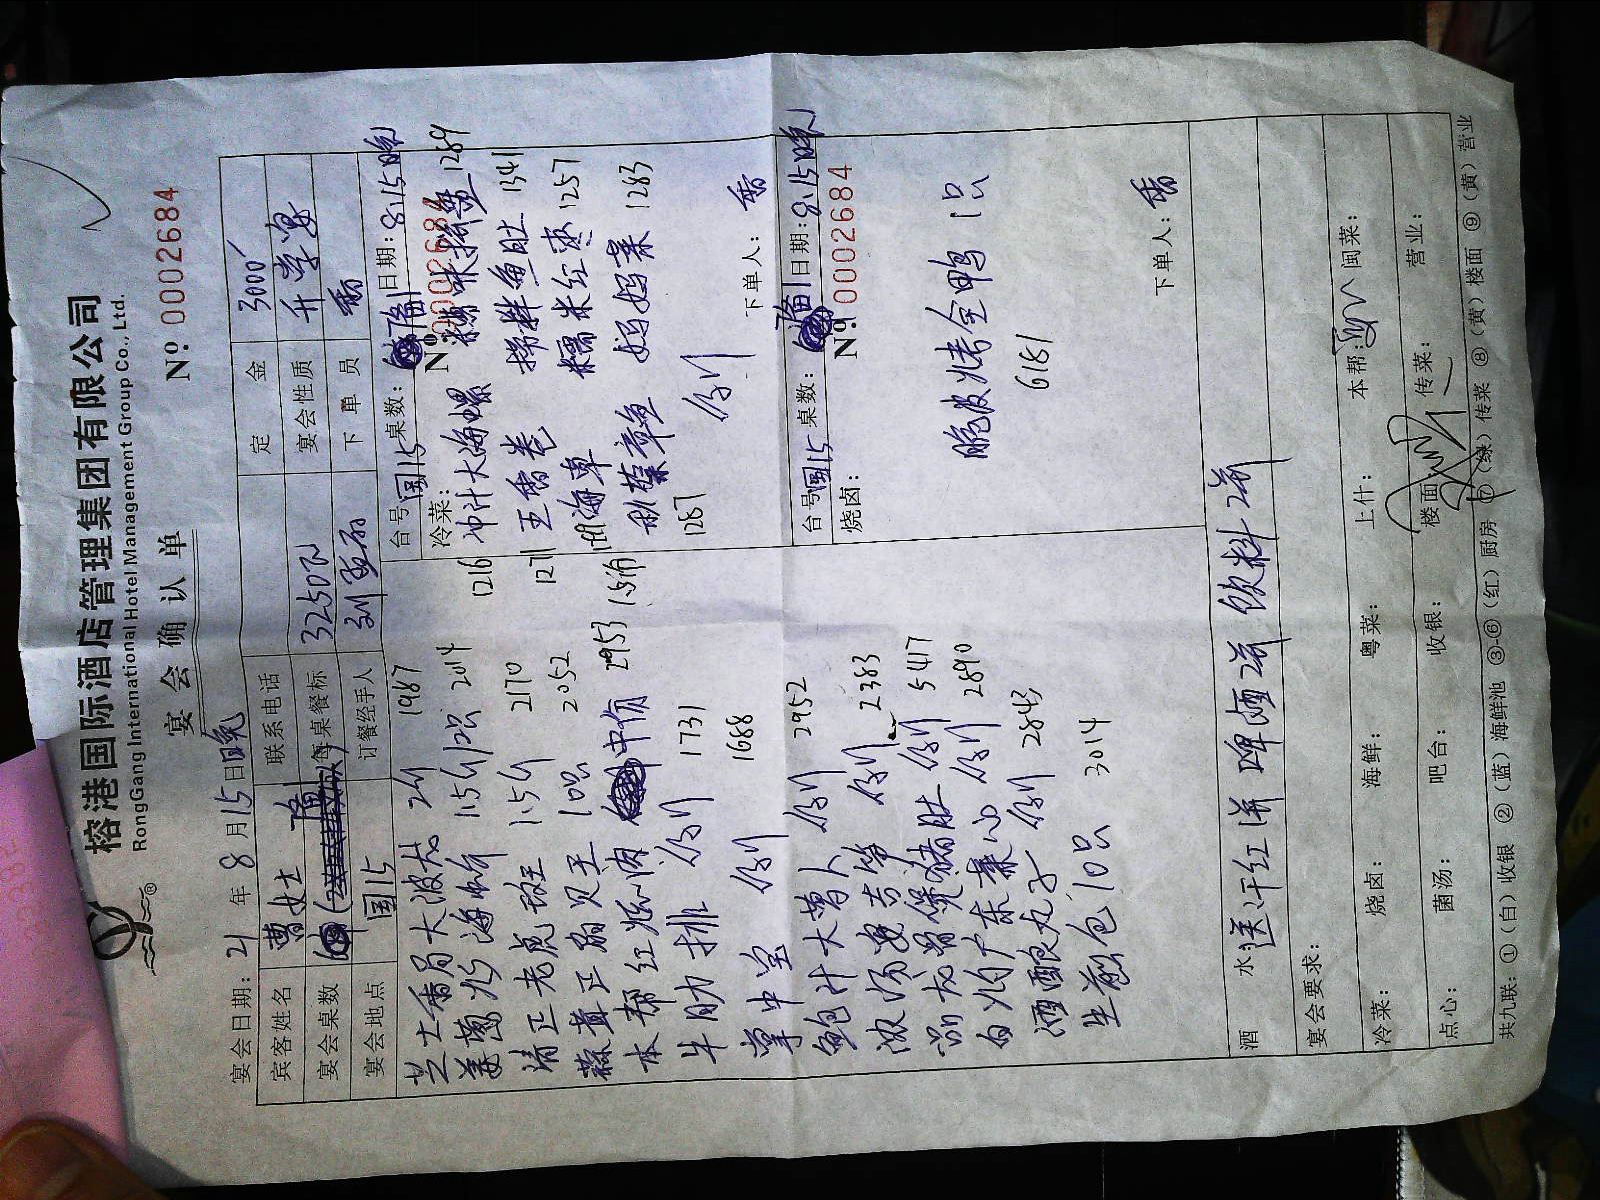 榕港国际酒店管理集团有限公司
RongGang International Hotel Management Group Co., Ltd.
宴会确认单
№ 0002684
宴会日期: 21 年 8 月 15 日 晚
宾客姓名 曹女士 联系电话 定金 3000
宴会桌数 每桌餐标 3250 宴会性质 升学宴
宴会地点 国15 订餐经手人 下单员 香
芝士香焗大波龙 2份 1987
姜葱炒海蟹 1.5份12只 2014
清正老虎斑 1.5斤 2170
蒜茸正扇贝王 10只 2052
本帮红烧肉 中份 2953
牛肋排 例 1731
掌中宝 例 1688
鲍汁大萝卜 例 2952
浓汤娃 例 2383
猪肚 例 5417
白灼广东菜心 例 2890
酒酿丸子 例 2843
生煎包10只 3014
台号: 国15 桌数: 日期: 8.15晚
冷菜: № 0002684
1216 冲汁大海螺 1289
1271 捞拌鱼肚 1341
海草 糯米红枣 1257
章鱼 1287 妈妈菜 1283
例
下单人: 香
台号: 国15 桌数: 日期: 8.15晚
烧卤: № 0002684
脆皮烤全鸭 1只
6181
下单人: 香
酒水: 送干红1瓶 啤酒2瓶 饮料2瓶
宴会要求:
冷菜: 烧卤: 海鲜: 粤菜: 上什: 本帮: 闽菜:
点心: 菌汤: 吧台: 收银: 楼面: 传菜: 营业:
共九联: ①(白)收银 ②(蓝)海鲜池 ③-⑥(红)厨房 ⑦(绿)传菜 ⑧(黄)楼面 ⑨(黄)营业